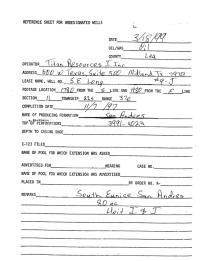 REFERENCE SHEET FOR UNDESIGNATED WELLS
DATE 3/15/99
OIL/GAS Oil
COUNTY Lea
OPERATOR Titan Resources I Inc
ADDRESS 500 W Texas, Suite 500 Midland Tx 79701
LEASE NAME, WELL NO. S.E. Long #9-J
FOOTAGE LOCATION FROM THE S LINE AND FROM THE E LINE
SECTION 11 TOWNSHIP 22S RANGE 37E
COMPLETION DATE 11/7/97
NAME OF PRODUCING FORMATION San Andres
TOP OF PERFORATIONS 3991-4023
DEPTH TO CASING SHOE
C-123 FILED
NAME OF POOL FOR WHICH EXTENSION WAS ASKED
ADVERTISED FOR HEARING CASE NO.
NAME OF POOL FOR WHICH EXTENSION WAS ADVERTISED
PLACED IN BY ORDER NO. R-
REMARKS South Eunice San Andres
80 ac
Unit I & J